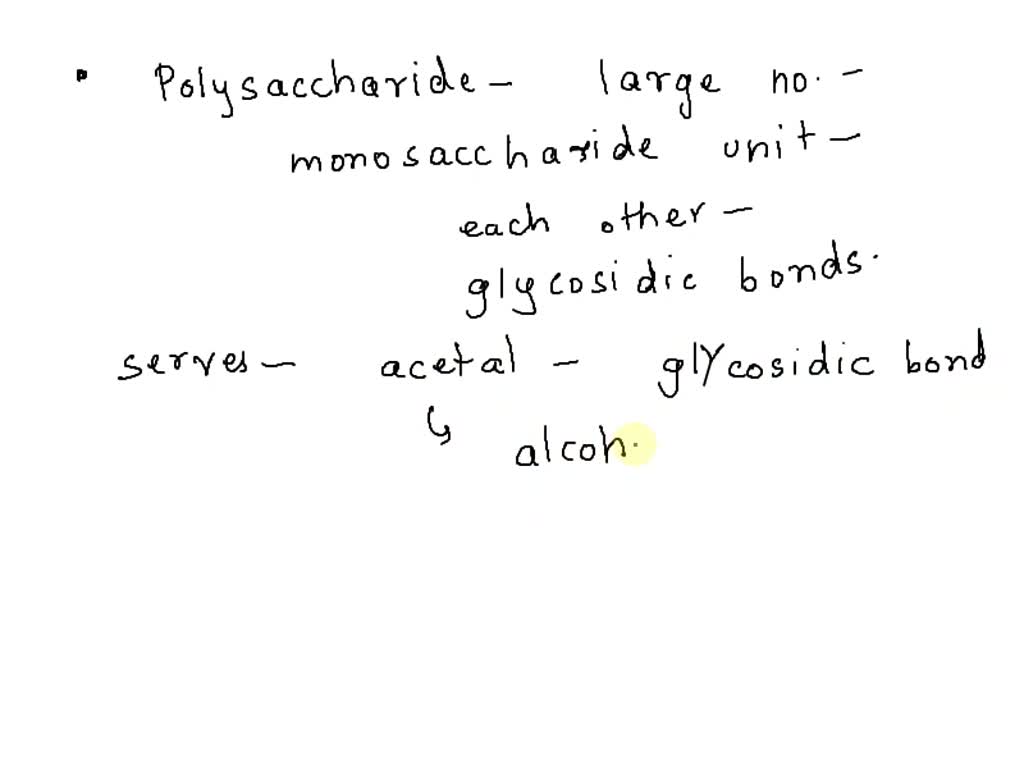 • Polysaccharide - large no. -
monosaccharide unit -
each other -
glycosidic bonds.
serves - acetal - glycosidic bond
↳ alcoh